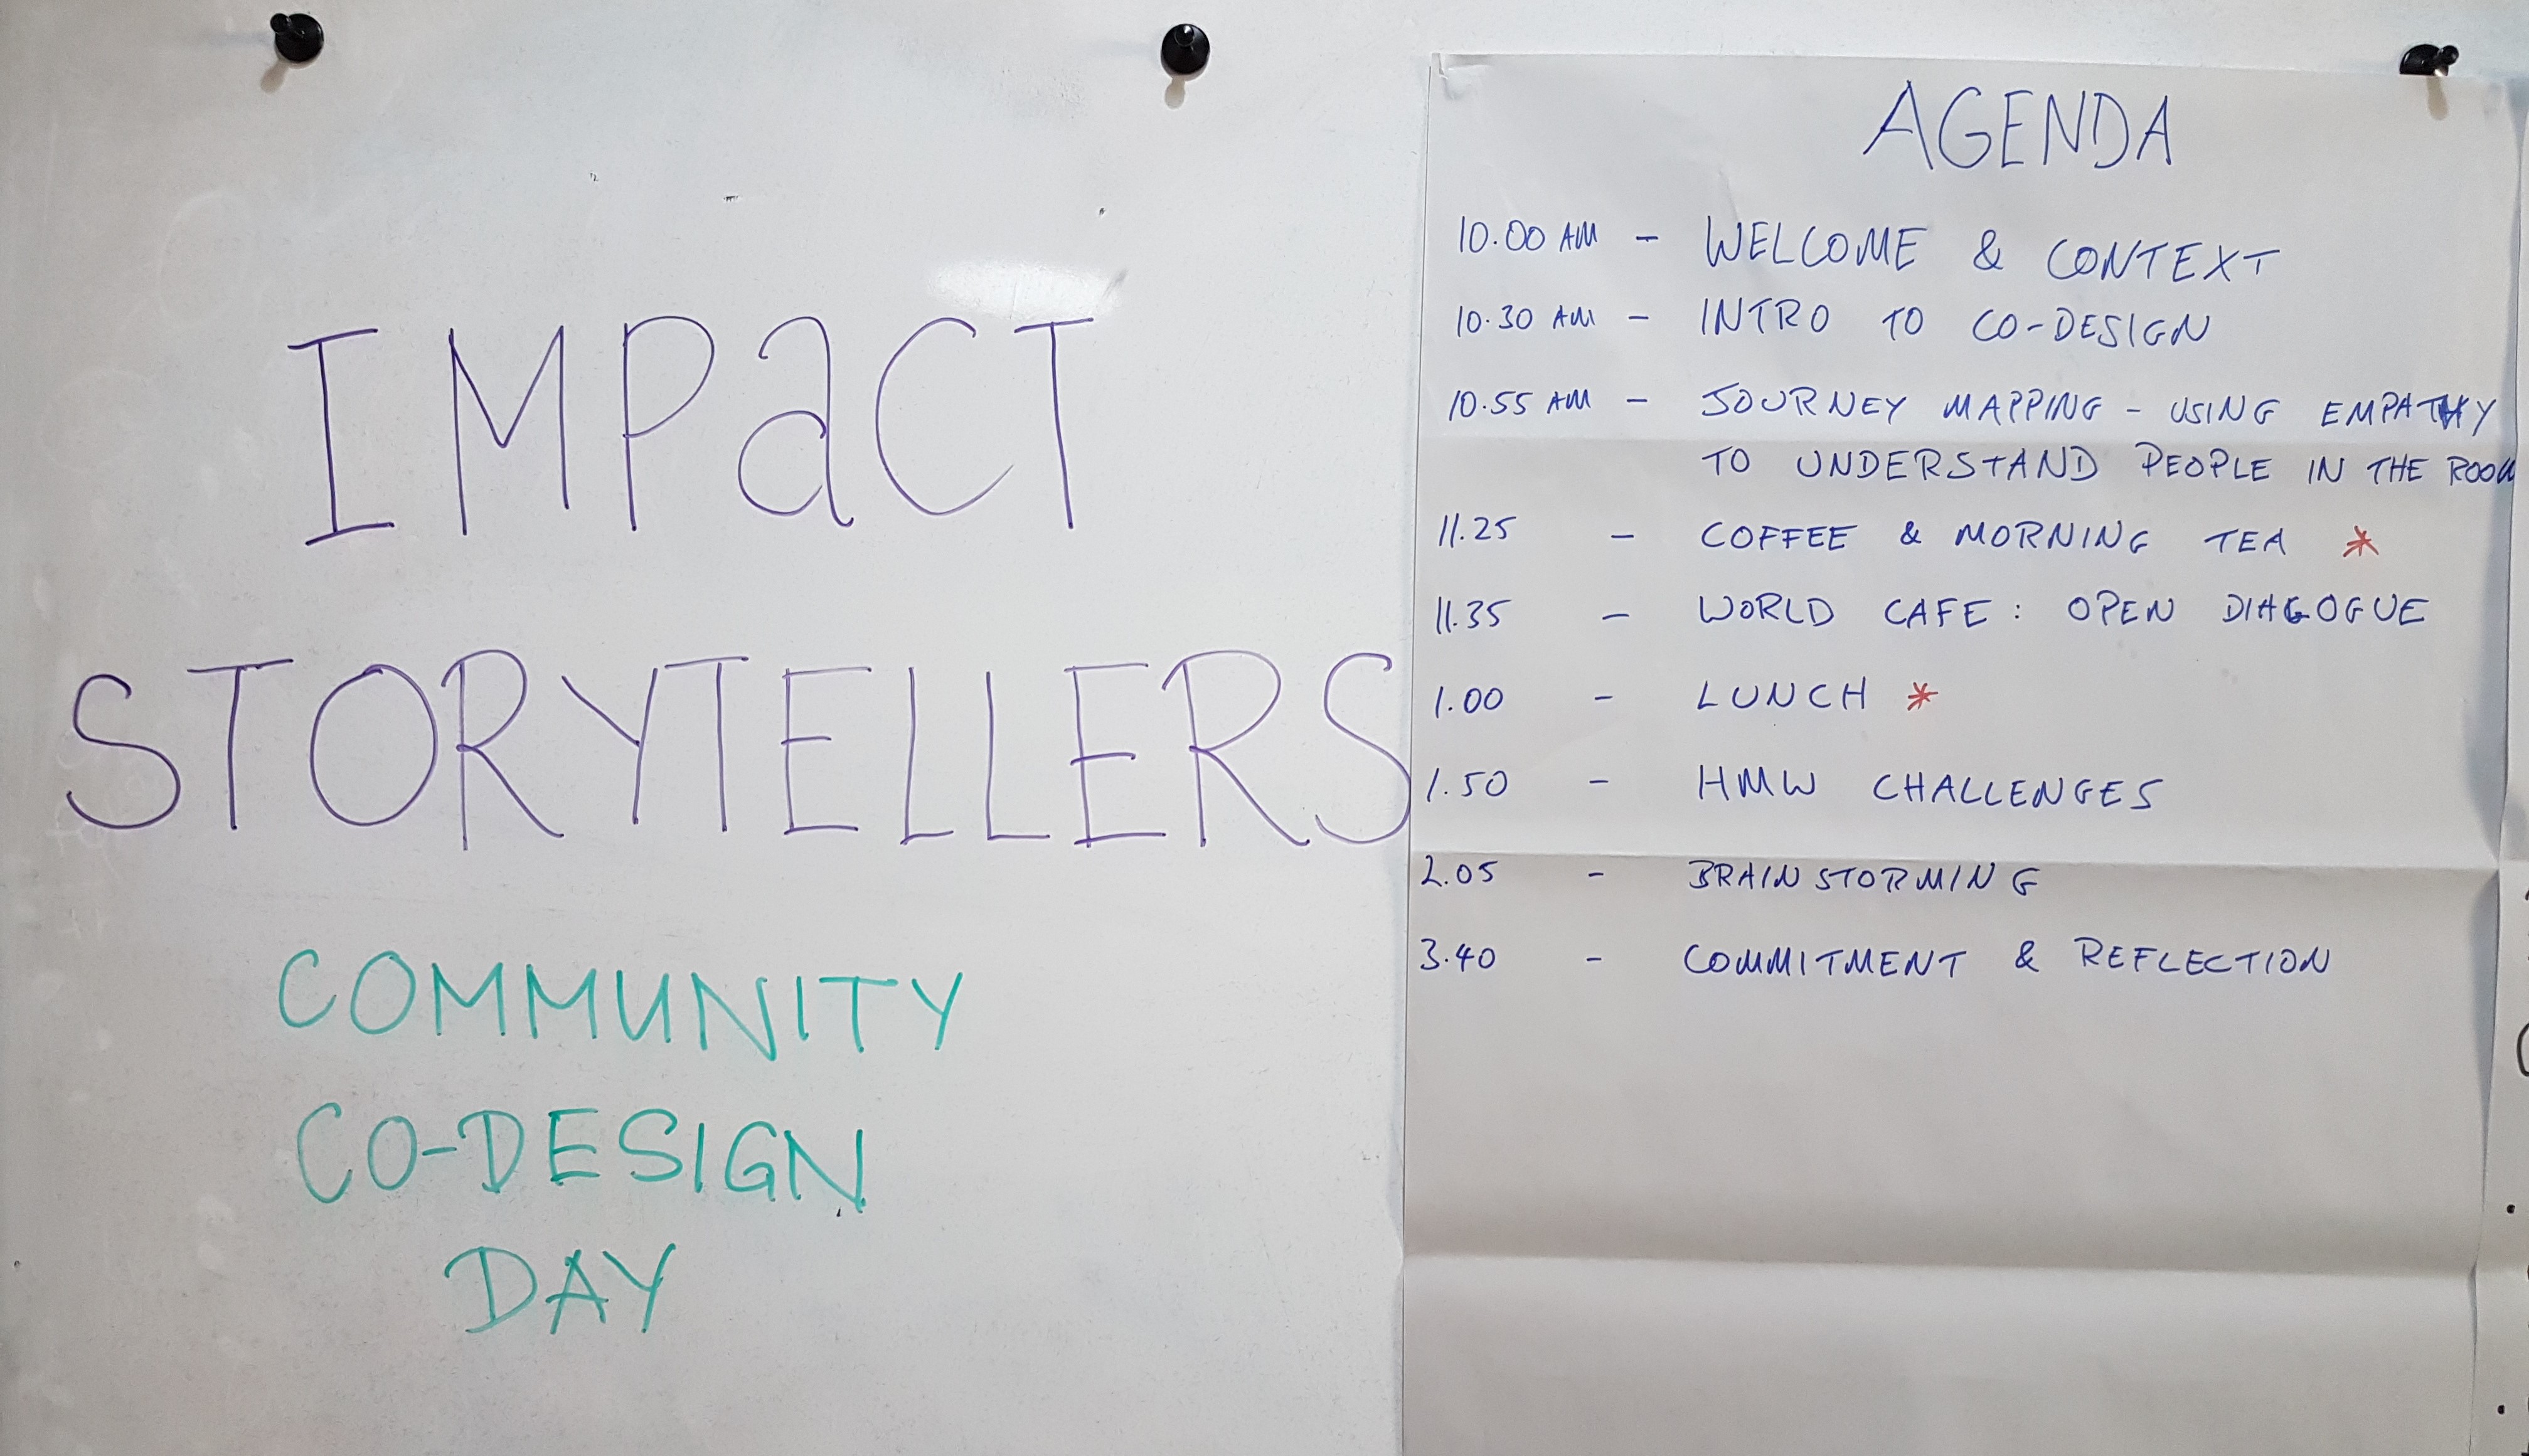 IMPaCT
STORYTELLERS
COMMUNITY
CO-DESIGN
DAY
AGENDA
10.00 AM - WELCOME & CONTEXT
10.30 AM - INTRO TO CO-DESIGN
10.55 AM - JOURNEY MAPPING - USING EMPATHY
TO UNDERSTAND PEOPLE IN THE ROOM
11.25 - COFFEE & MORNING TEA *
11.35 - WORLD CAFE: OPEN DIAGOGUE
1.00 - LUNCH *
1.50 - HMW CHALLENGES
2.05 - BRAINSTORMING
3.40 - COMMITMENT & REFLECTION